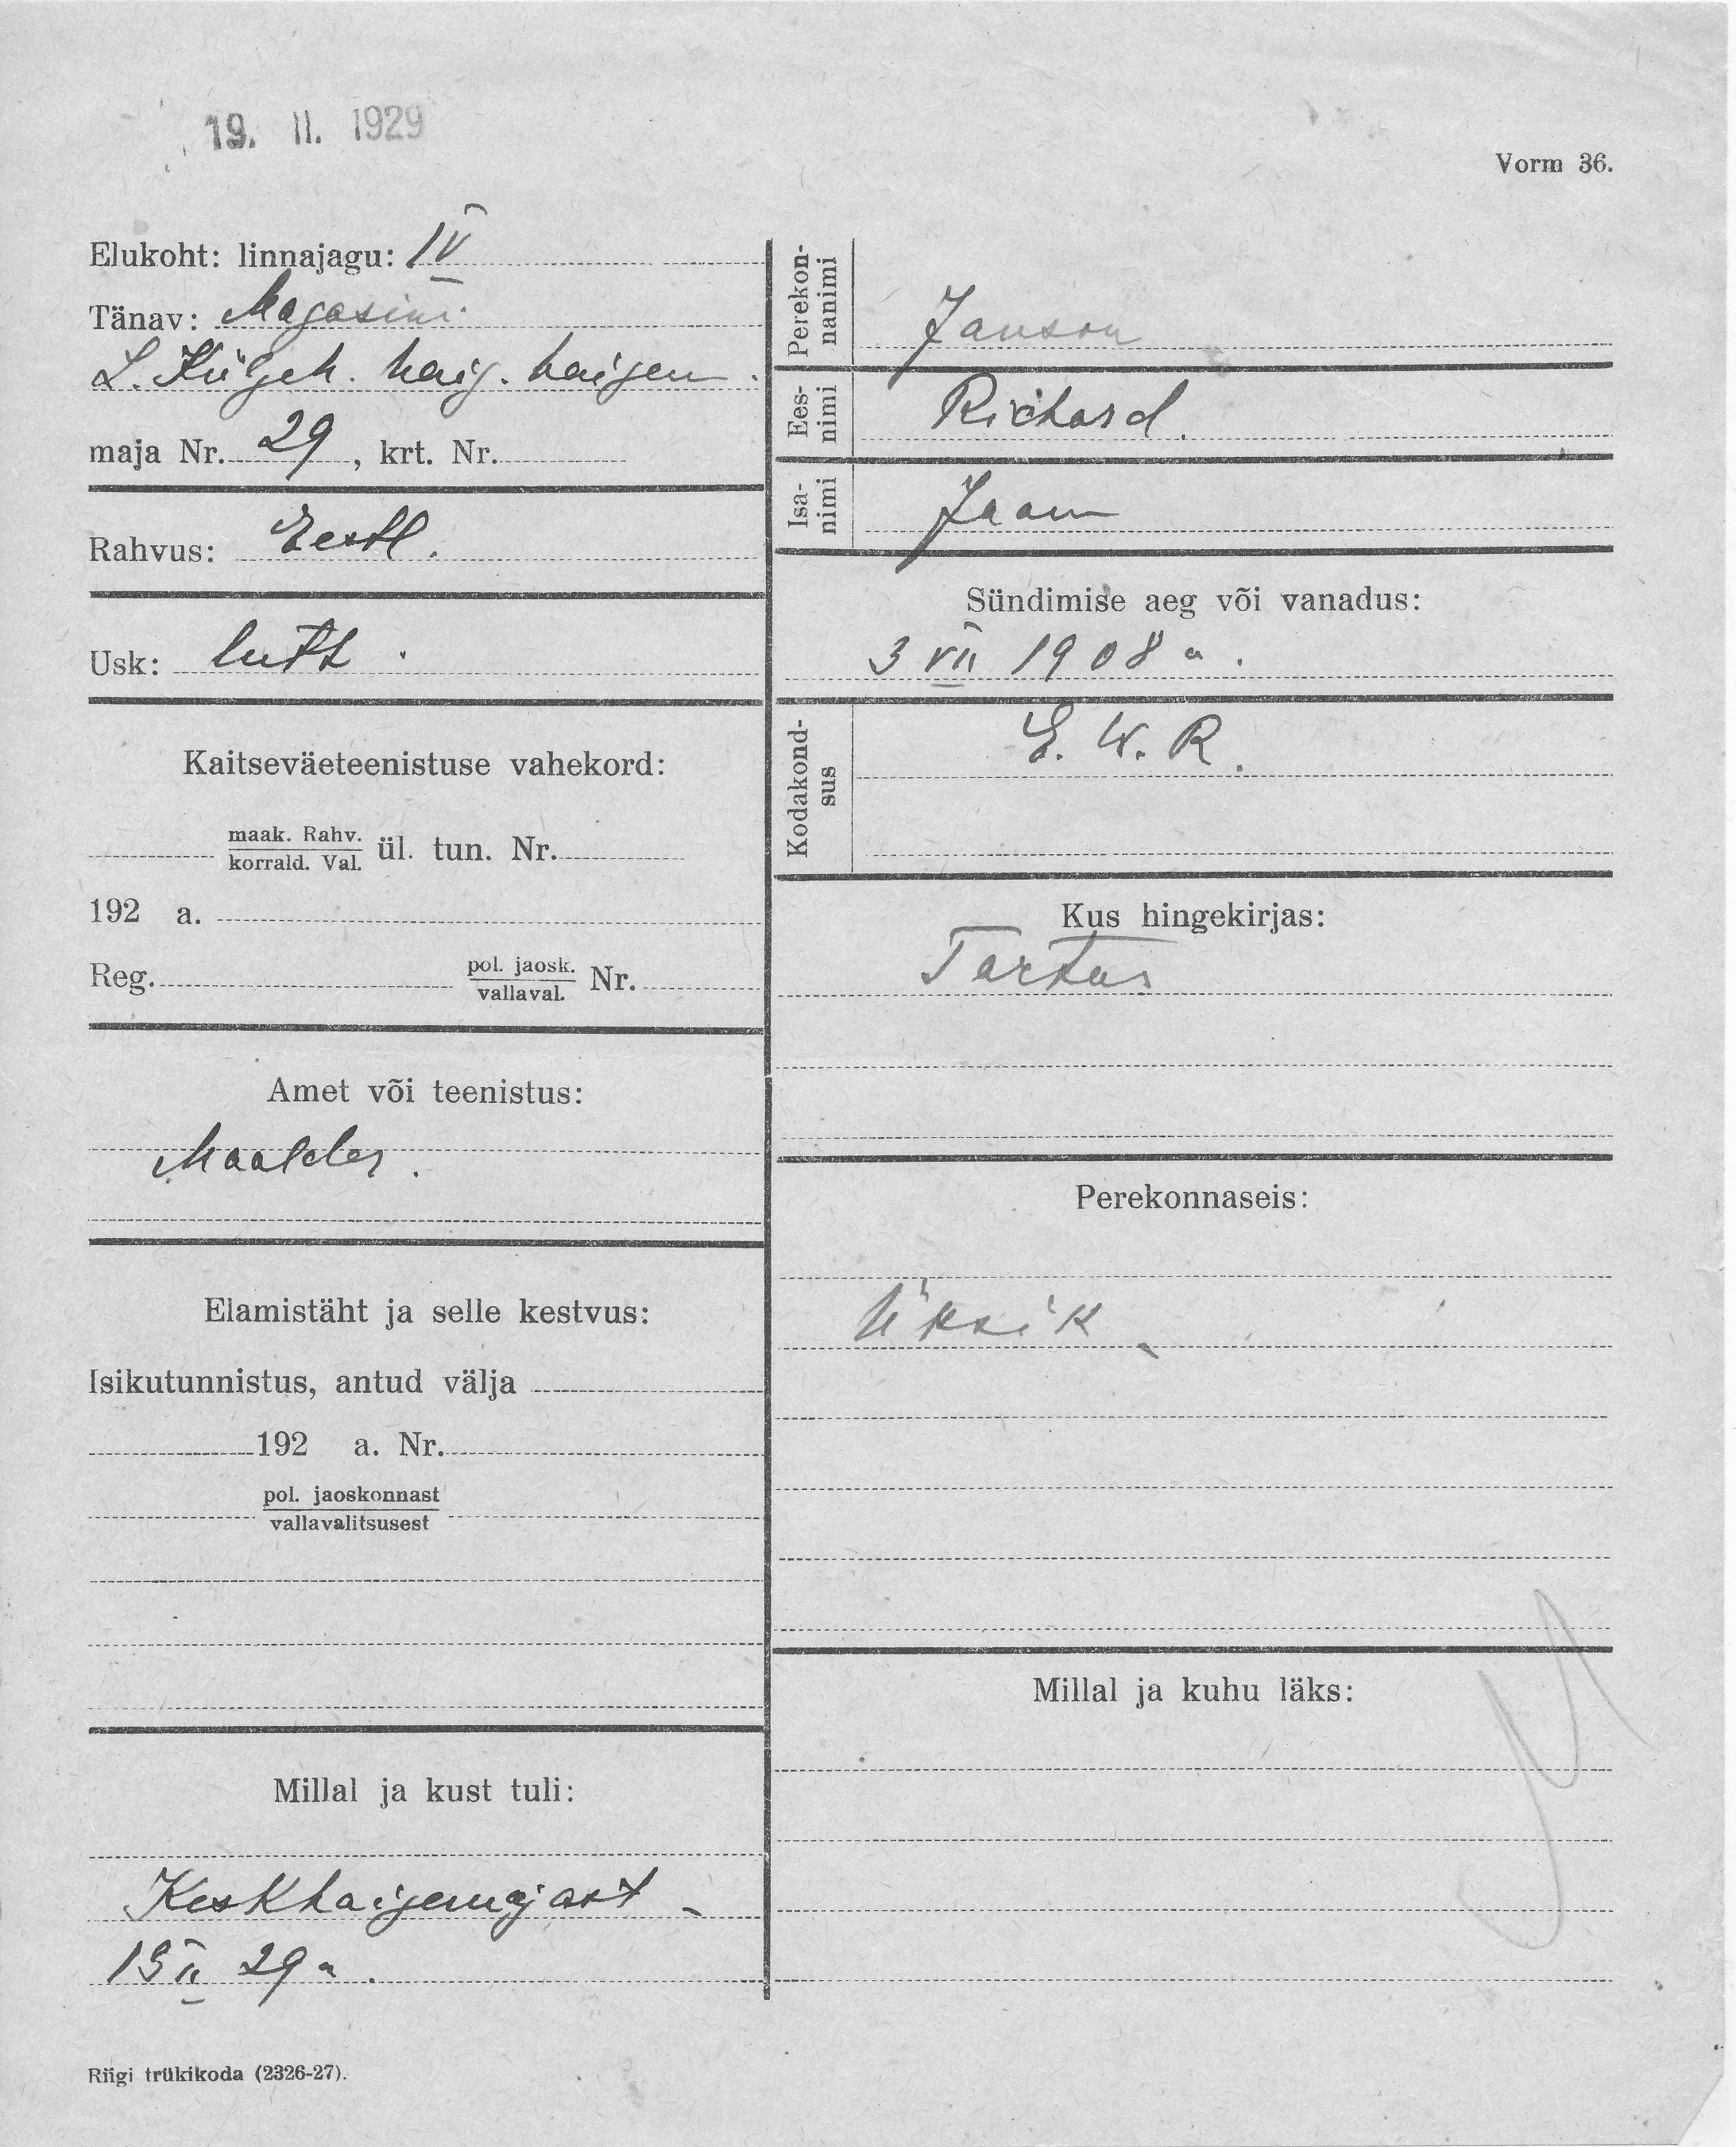 19. II. 1929
Vorm 36.
Elukoht: linnajagu: IV
Tänav: Magasini
L. Külgeh. haig. haigem.
maja Nr. 29, krt. Nr.
Rahvus: Eestl.
Usk: luth.
Kaitseväeteenistuse vahekord:
maak. Rahv.
korrald. Val. ül. tun. Nr.
192 a.
Reg. pol. jaosk.
vallaval. Nr.
Amet või teenistus:
Maalder.
Elamistäht ja selle kestvus:
Isikutunnistus, antud välja
192 a. Nr.
pol. jaoskonnast
vallavalitsusest
Millal ja kust tuli:
Keskhaigemajast
19 II 29 a.
Riigi trükikoda (2326-27).
Perekon-
nanimi
Janson
Ees-
nimi
Richard.
Isa-
nimi
Jaan
Sündimise aeg või vanadus:
3 VII 1908 a.
Kodakond-
sus
E. W. R.
Kus hingekirjas:
Tartus
Perekonnaseis:
Üksik
Millal ja kuhu läks: